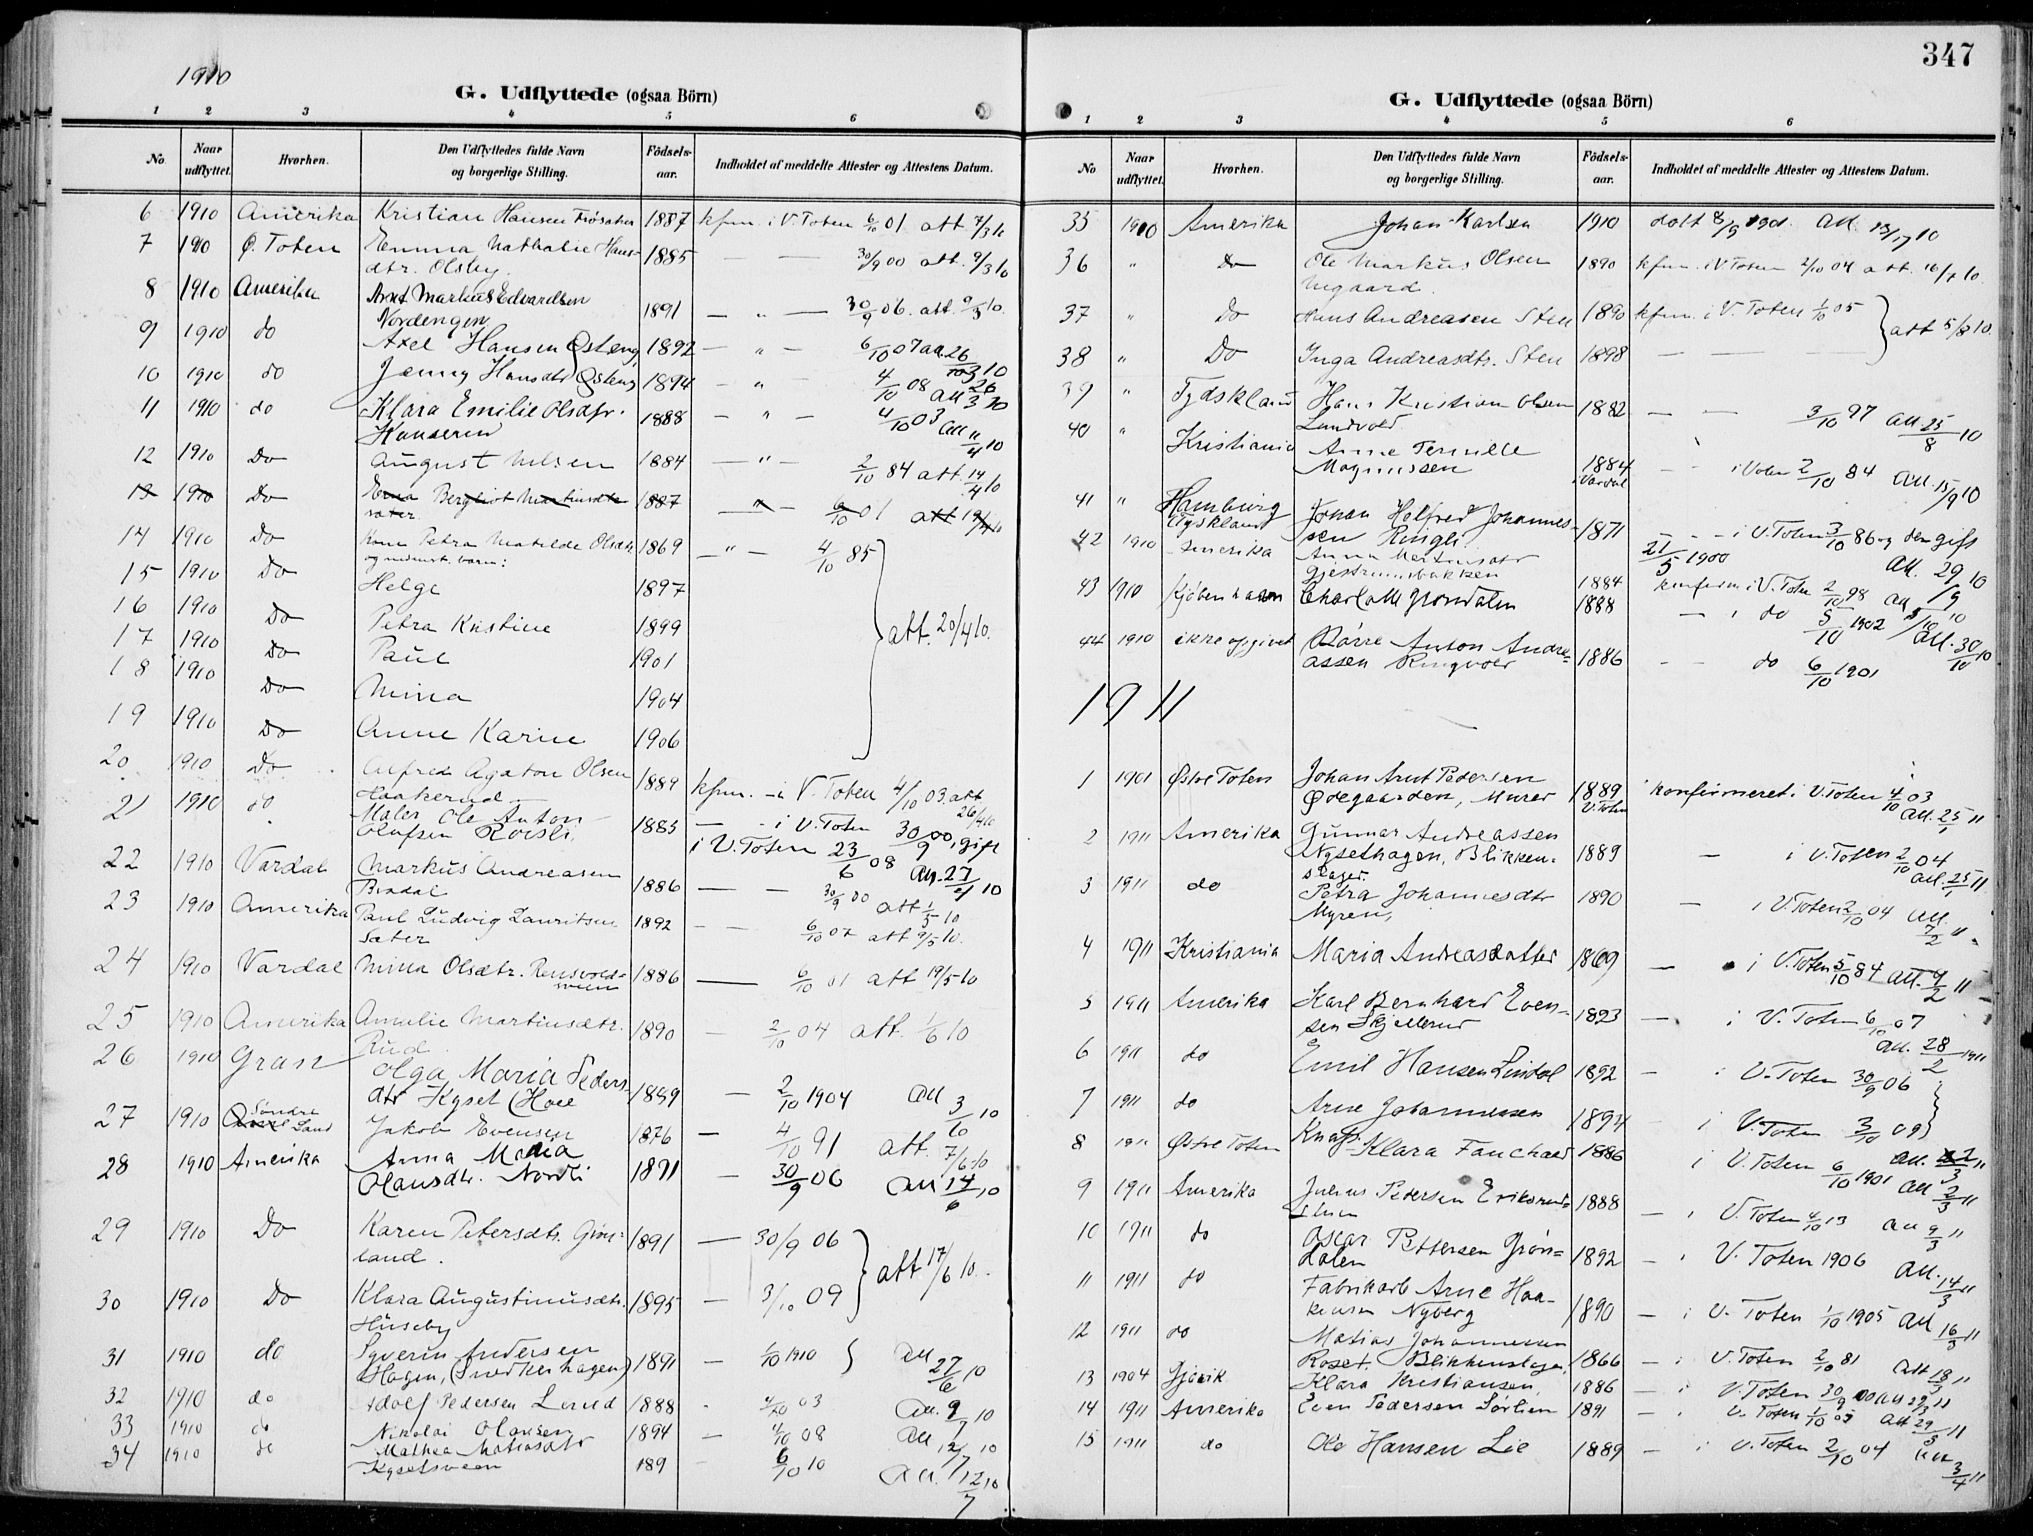 1910
G. Udflyttede (ogsaa Börn)
1 2 3 4 5 6
No
Naar udflyttet.
Hvorhen.
Den Udflyttedes fulde Navn og borgerlige Stilling.
Födsels-aar.
Indholdet af meddelte Attester og Attestens Datum.
6 1910 Amerika Kristian Hansen 1887 kfm. i V. Toten 6/10 01 att 7/3 10
7 1910 Ø. Toten Emma Nathalie Hans- 1885 — — 30/9 00 att. 9/3 10
dtr. Olsby.
8 1910 Amerika Arnt Markus Edvardsen 1891 — " — 30/9 06. att. 9/3 10.
Nordengen
9 1910 do Axel Hansen Østeng 1892 — " — 6/10 07 att. 26/3 10
10 1910 do Jenny Hansdtr Østeng 1894 — " — 4/10 08 att 26/3 10
11 1910 do Klara Emilie Olsdtr. 1888 — " — 4/10 03 att 11/4 10
12 1910 Do August Nilsen 1884 — " — 2/10 84 att. 14/4 10
13 1910 Do Bergliot Martinsdtr 1887 — " — 6/10 01 att
sater
14 1910 Do Kone Petra Matilde Olsdtr 1869 — " — 4/10 85
og børn:
15 1910 Do Helge 1897
16 1910 Do Petra Kristine 1899 att. 20/4 10.
17 1910 Do Paul 1901
18 1910 Do Mina 1904
19 1910 Do Anne Karine 1906
20 1910 Do Alfred Agaton Olsen 1889 kfm. i V. Toten 4/10 03. att 26/4 10
Haakerud
21 1910 do Maler Ole Anton 1885 — i V. Toten 30/9 00, gift
Olafsen i V. Toten 23/6 08 att. 27/4 10
22 1910 Vardal Markus Andreasen 1886 — — 30/9 00 att 1/5 10
23 1910 Amerika Paul Ludvig Lauritsen 1892 — — 6/10 07 att 9/5 10.
Sater
24 1910 Vardal Mina Olsdtr. 1886 — 6/10 01 att 19/5 10
25 1910 Amerika Amalie Martinsdtr. 1890 — 2/10 04 att. 1/6 10
Rud.
26 1910 Gran Olga Maria Peders 1889 — 2/10 1904 att 3/6 10
dtr Kyset
27 1910 Søndre Land Jakob Evensen 1876 — 4/10 91 att. 7/6 10
28 1910 Amerika Anna Maria 1891 — 30/9 06 att 14/6 10
Hansdtr. Nordli
29 1910 Do Karen Petersdtr. Grøn- 1891 — 30/9 06
land. att 17/6 10.
30 1910 Do Klara Augustinusdtr. 1895 — 3/10 09
Huseby
31 1910 do Syverin Andersen 1891 — 1/10 1910 att 27/6 10
Hagen, (Snedkerhagen)
32 1910 do Adolf Pedersen Lund 1888 4/10 03 att. 9/7 10
33 1910 do Nikolai Olausen 1894 — 4/10 08 att 12/7 10
34 1910 do Mathea Matiasdtr 189 — 6/10 10 att. 12/7 10
Kysetsveen
347
G. Udflyttede (ogsaa Börn)
1 2 3 4 5 6
No
Naar udflyttet.
Hvorhen.
Den Udflyttedes fulde Navn og borgerlige Stilling.
Födsels-aar.
Indholdet af meddelte Attester og Attestens Datum.
35 1910 Amerika Johan Karlsen 1910 døbt att. 10
36 " Do Ole Markus Olsen 1890 kfm. i V Toten 2/10 04 att.
37 " Do Hans Andreasen Sten 1890 kfm. i V. Toten 1/10 05
att 5/8 10.
38 " Do Inga Andreasdtr. Sten 1898 — —
39 " Tydskland Hans Kristian Olsen 1882 — — 3/10 97 att. 25/8 10
Lundvold
40 " Kristiania Anne Pernille 1884 — — i Vardal 2/10 84 att. 15/9 10
Magnussen Vardal
41 " Hamburg Johan Halfred Johannes- 1871 — i V. Toten 3/10 86 og den gift
Tyskland sen Ringli 21/5 1900 att. 29/9 10
42 1910 Amerika Anna Martinsdtr 1884 konfirm i V. Toten 2/10 98 att
43 1910 Kjøbenhavn Charlotte Grøndalen 1888 — i do 5/10 1902 att. 30/10 10
44 1910 ikke opgivet Børre Anton Andre- 1886 — — do 6/10 1901
assen Ringvold
1911
1 1901 Østre Toten Johan Arnt Pedersen 1889 konfirmeret i V. Toten 4/10 03
Ødegaarden, Murer V. Toten att. 25/1 11
2 1911 Amerika Gunnar Andreassen 1889 — i V. Toten 2/10 04
Nysethagen, Blikken- att. 25/1 11
slager.
3 1911 do Petra Johannesdtr 1890 — i V. Toten 2/10 04 att. 7/2 11
Myren,
4 1911 Kristiania Maria Andreasdatter 1869 — i V. Toten 5/10 84 att. 9/2 11
5 1911 Amerika Karl Bernhard Even- 1893 — i V. Toten 6/10 07
sen Skjellerud att. 28/2 1911
6 1911 do Emil Hansen Lindal 1892 — i V. Toten 30/9 06
7 1911 do Arne Johannessen 1894 — i V. Toten 3/10 09
8 1911 Østre Toten Klara Fauchald 1886 i V. Toten 6/10 1901 att 2/3 11
9 1911 Amerika Julius Pedersen Eriksrud- 1888 — i V. Toten 4/10 13 att 9/3 11
10 1911 do Oscar Pettersen Grøn- 1892 — i V. Toten 1906 att. 14/3 11
dalen
11 1911 do Fabrikarb Arne Haa- 1890 — i V. Toten 1/10 1905 att 16/3 11
kensen Nyberg
12 1911 do Matias Johannessen 1866 — i V. Toten 2/10 81 att 18/3 11
Roset. Blikkenslager
13 1904 Gjøvik Klara Kristiansen 1886 — i V. Toten 30/9 00 att 29/3 11
14 1911 Amerika Even Pedersen Sørlien 1891 — i V. Toten 1/10 05 att 29/3 11
15 1911 do Ole Hansen Lie 1889 — i V. Toten 2/10 04 att 3/4 11